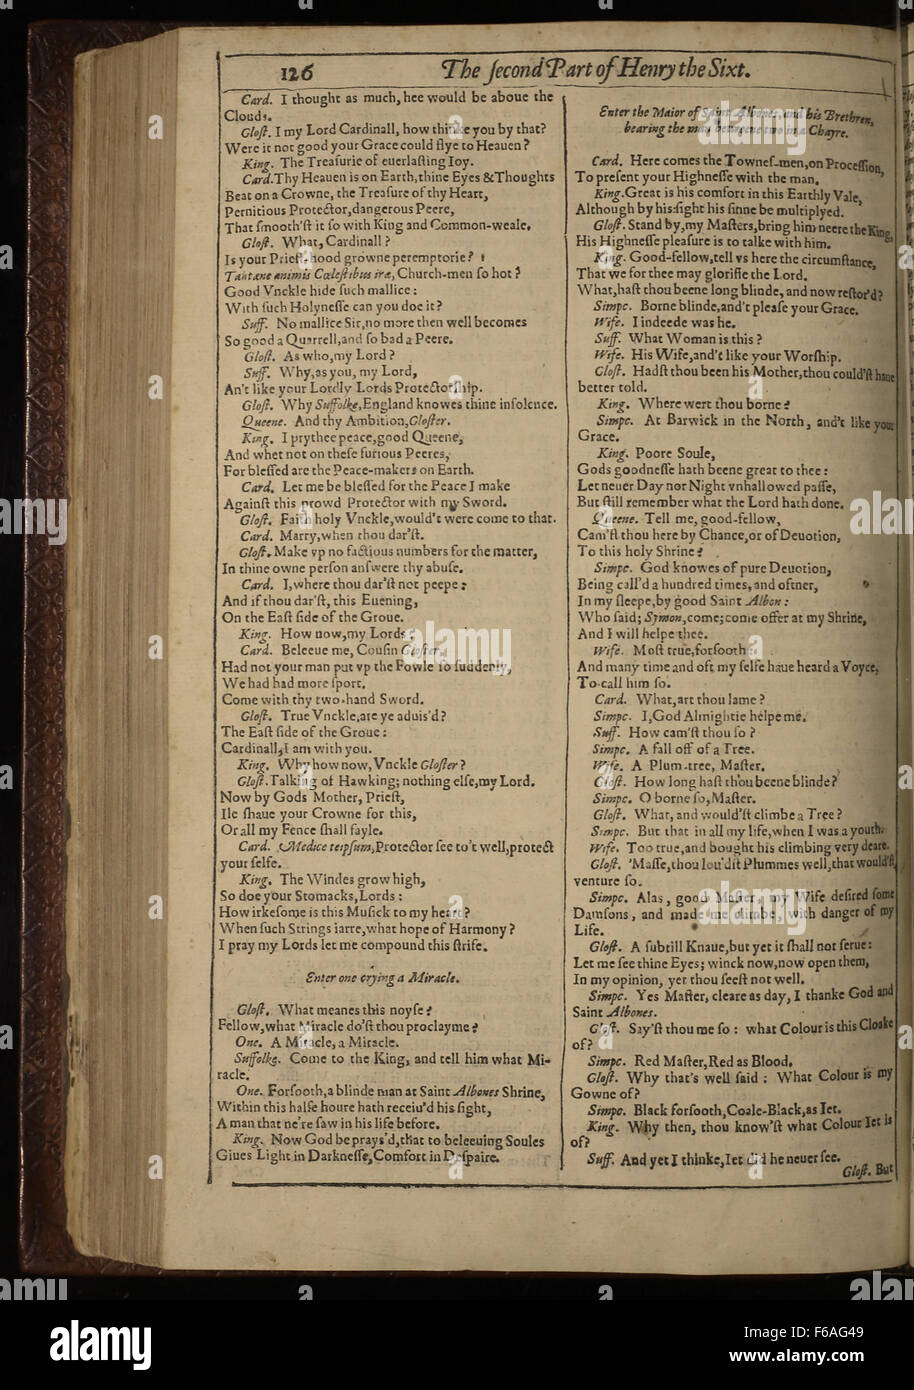 126
The second Part of Henry the Sixt.
Card. I thought as much, hee would be aboue the
Clouds.
Glost. I my Lord Cardinall, how thinke you by that?
Were it not good your Grace could flye to Heauen?
King. The Treasurie of euerlasting Ioy.
Card. Thy Heauen is on Earth, thine Eyes & Thoughts
Beat on a Crowne, the Treasure of thy Heart,
Pernitious Protector, dangerous Peere,
That smooth'st it so with King and Common-weale.
Glost. What, Cardinall?
Is your Priest-hood growne peremptorie?
Tantæne animis Cœlestibus iræ, Church-men so hot?
Good Vnckle hide such mallice:
With such Holynesse can you doe it?
Suff. No mallice Sir, no more then well becomes
So good a Quarrell, and so bad a Peere.
Glost. As who, my Lord?
Suff. Why, as you, my Lord,
An't like your Lordly Lords Protectorship.
Glost. Why Suffolke, England knowes thine insolence.
Queene. And thy Ambition, Gloster.
King. I prythee peace, good Queene,
And whet not on these furious Peeres,
For blessed are the Peace-makers on Earth.
Card. Let me be blessed for the Peace I make
Against this prowd Protector with my Sword.
Glost. Faith holy Vnckle, would't were come to that.
Card. Marry, when thou dar'st.
Glost. Make vp no factious numbers for the matter,
In thine owne person answere thy abuse.
Card. I, where thou dar'st not peepe:
And if thou dar'st, this Euening,
On the East side of the Groue.
King. How now, my Lords?
Card. Beleeue me, Cousin Gloster,
Had not your man put vp the Fowle so suddenly,
We had had more sport.
Come with thy two-hand Sword.
Glost. True Vnckle, are ye aduis'd?
The East side of the Groue:
Cardinall, I am with you.
King. Why how now, Vnckle Gloster?
Glost. Talking of Hawking; nothing else, my Lord.
Now by Gods Mother, Priest,
Ile shaue your Crowne for this,
Or all my Fence shall fayle.
Card. Medice teipsum, Protector see to't well, protect
your selfe.
King. The Windes grow high,
So doe your Stomacks, Lords:
How irkesome is this Musick to my heart?
When such Strings iarre, what hope of Harmony?
I pray my Lords let me compound this strife.
Enter one crying a Miracle.
Glost. What meanes this noyse?
Fellow, what Miracle do'st thou proclayme?
One. A Miracle, a Miracle.
Suffolke. Come to the King, and tell him what Mi-
racle.
One. Forsooth, a blinde man at Saint Albones Shrine,
Within this halfe houre hath receiu'd his sight,
A man that ne're saw in his life before.
King. Now God be prays'd, that to beleeuing Soules
Giues Light in Darknesse, Comfort in Despaire.
Enter the Maior of Saint Albones, and his Brethren,
bearing the man betweene two in a Chayre.
Card. Here comes the Townes-men, on Procession,
To present your Highnesse with the man.
King. Great is his comfort in this Earthly Vale,
Although by his sight his sinne be multiplyed.
Glost. Stand by, my Masters, bring him neere the King,
His Highnesse pleasure is to talke with him.
King. Good-fellow, tell vs here the circumstance,
That we for thee may glorifie the Lord.
What, hast thou beene long blinde, and now restor'd?
Simpc. Borne blinde, and't please your Grace.
Wife. I indeede was he.
Suff. What Woman is this?
Wife. His Wife, and't like your Worship.
Glost. Hadst thou been his Mother, thou could'st haue
better told.
King. Where wert thou borne?
Simpc. At Barwick in the North, and't like your
Grace.
King. Poore Soule,
Gods goodnesse hath beene great to thee:
Let neuer Day nor Night vnhallowed passe,
But still remember what the Lord hath done.
Queene. Tell me, good-fellow,
Cam'st thou here by Chance, or of Deuotion,
To this holy Shrine?
Simpc. God knowes of pure Deuotion,
Being call'd a hundred times, and oftner,
In my sleepe, by good Saint Albon:
Who said; Symon, come; come offer at my Shrine,
And I will helpe thee.
Wife. Most true, forsooth:
And many time and oft my selfe haue heard a Voyce,
To call him so.
Card. What, art thou lame?
Simpc. I, God Almightie helpe me.
Suff. How cam'st thou so?
Simpc. A fall off of a Tree.
Wife. A Plum-tree, Master.
Glost. How long hast thou beene blinde?
Simpc. O borne so, Master.
Glost. What, and would'st climbe a Tree?
Simpc. But that in all my life, when I was a youth.
Wife. Too true, and bought his climbing very deare.
Glost. 'Masse, thou lou'dst Plummes well, that would'st
venture so.
Simpc. Alas, good Master, my Wife desired some
Damsons, and made me climbe, with danger of my
Life.
Glost. A subtill Knaue, but yet it shall not serue:
Let me see thine Eyes; winck now, now open them,
In my opinion, yet thou seest not well.
Simpc. Yes Master, cleare as day, I thanke God and
Saint Albones.
Glost. Say'st thou me so: what Colour is this Cloake
of?
Simpc. Red Master, Red as Blood.
Glost. Why that's well said: What Colour is my
Gowne of?
Simpc. Black forsooth, Coale-Black, as Iet.
King. Why then, thou know'st what Colour Iet is
of?
Suff. And yet I thinke, Iet did he neuer see.
Glost. But
a alamy stock photo
Image ID: F6AG49
www.alamy.com